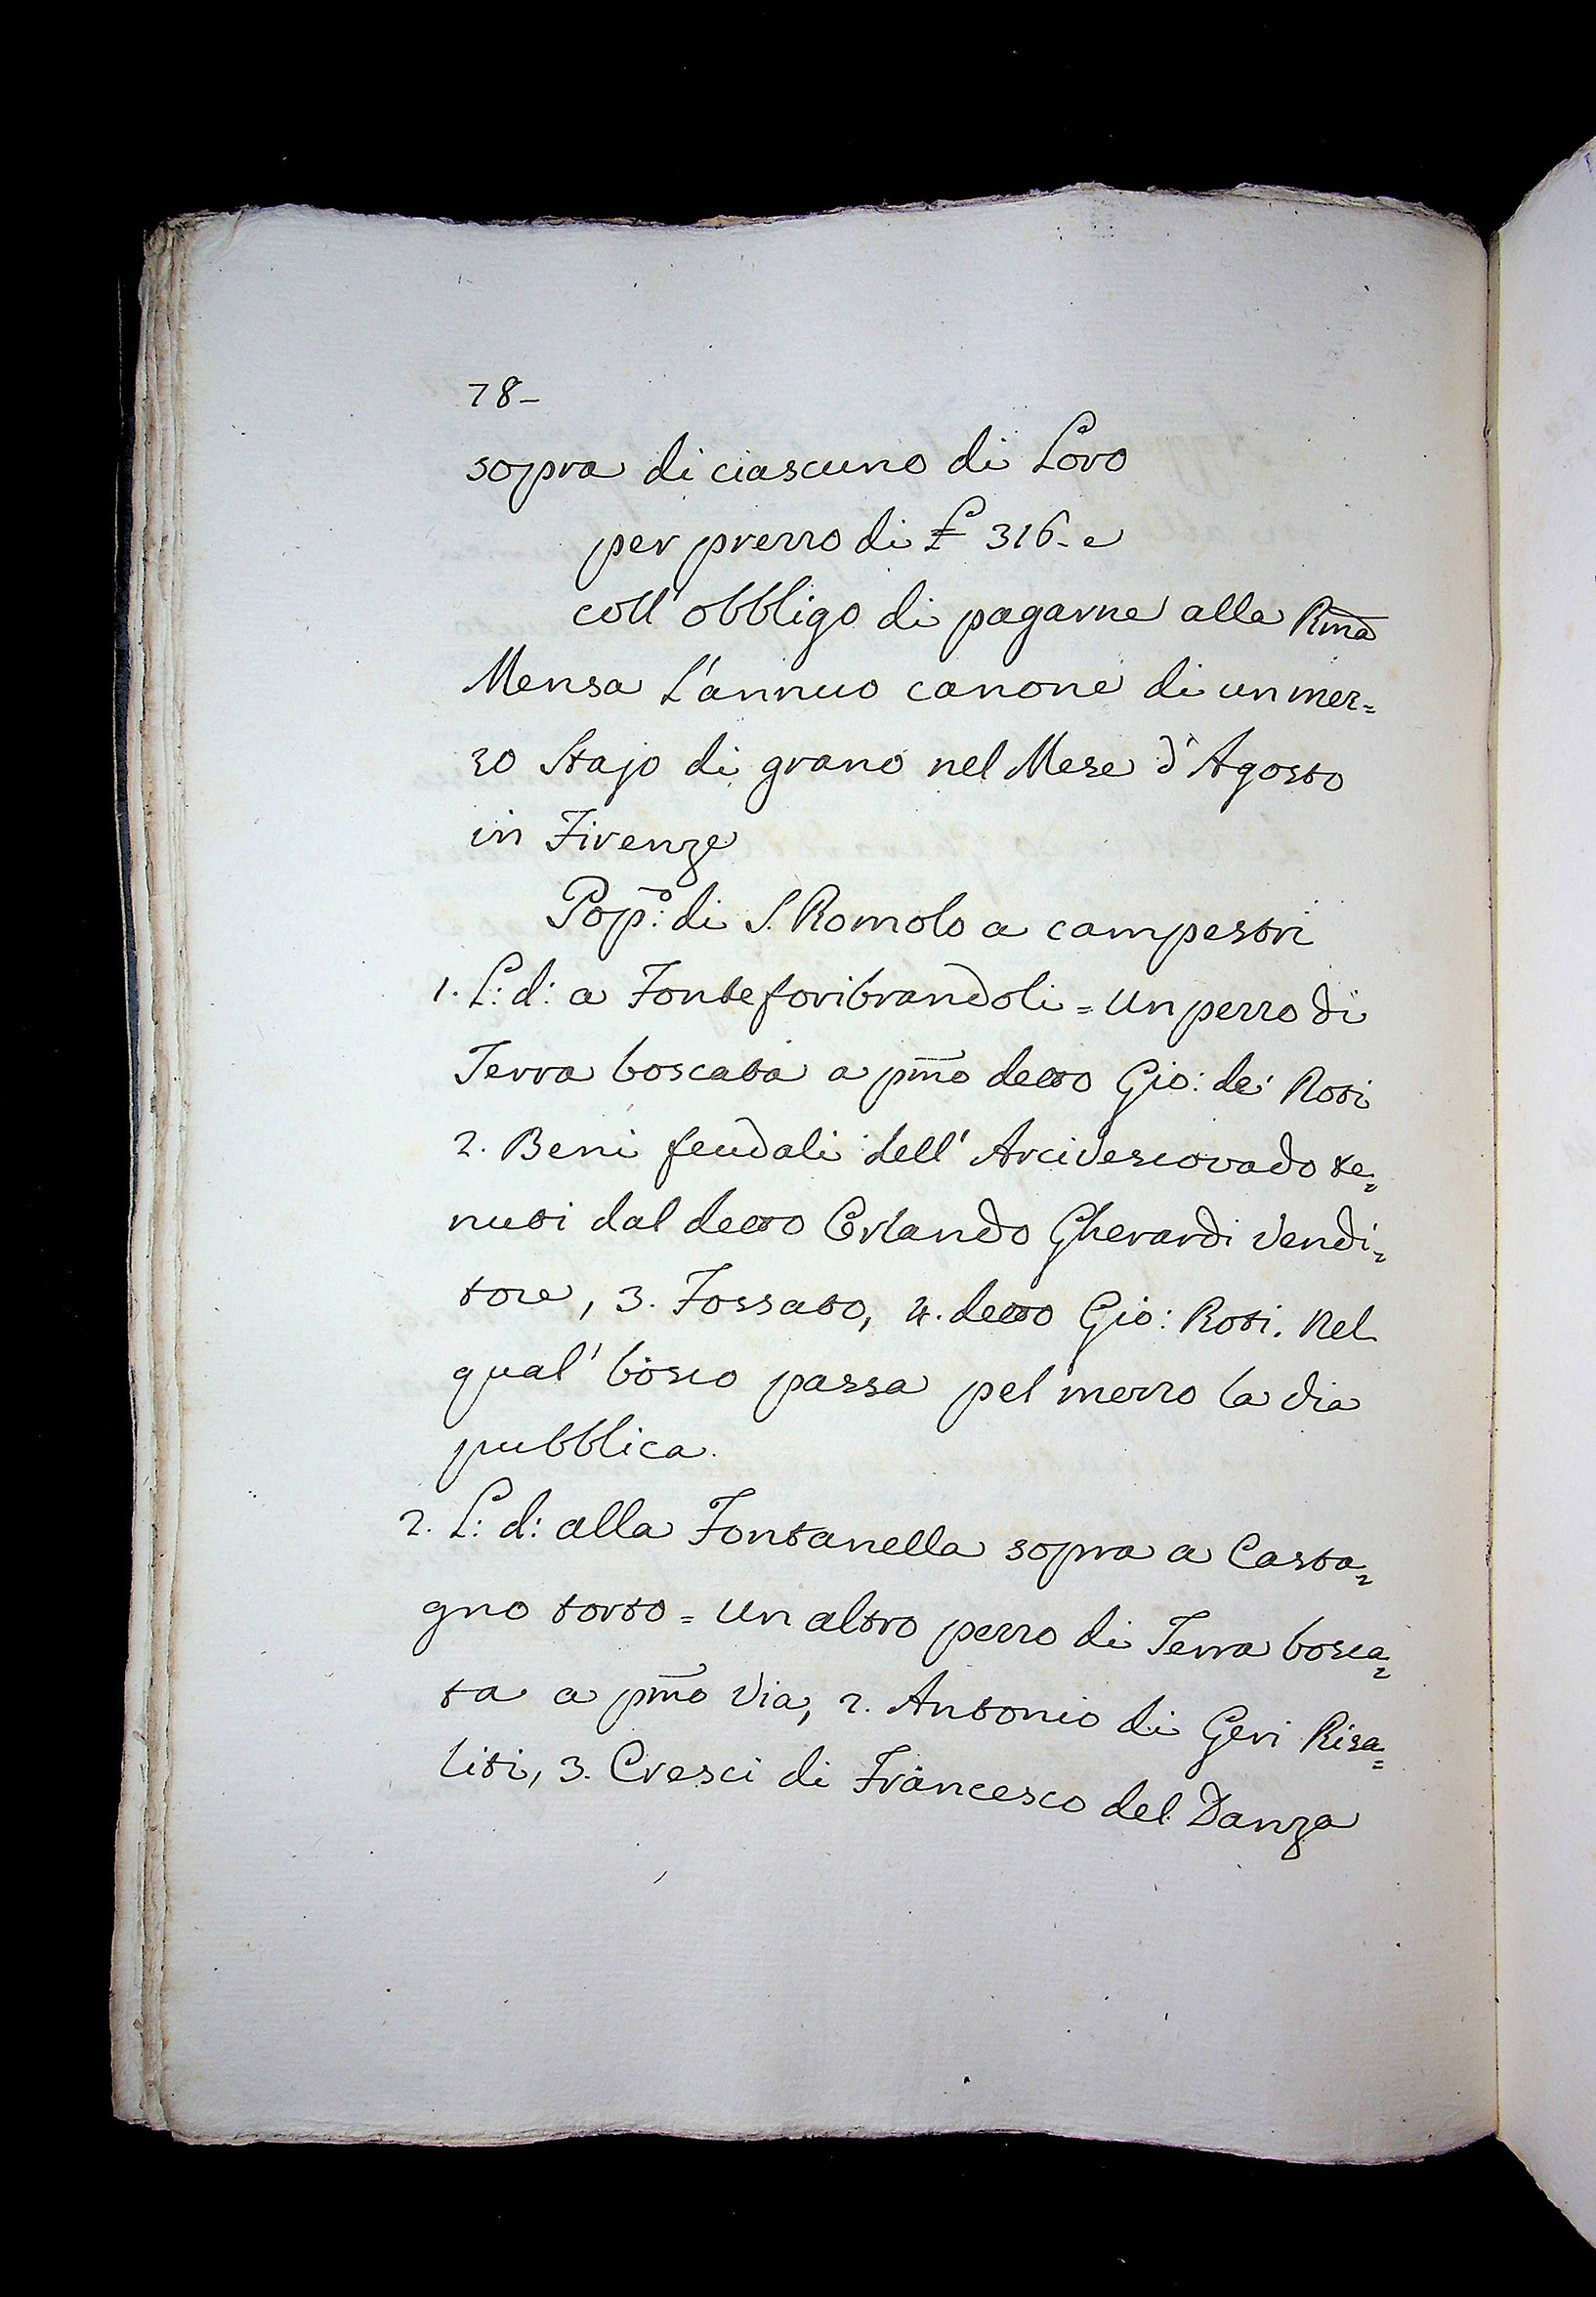 78-
sopra di ciascuno di Loro
per prezzo di £ 316- e
coll' obbligo di pagarne alla Rma
Mensa L'annuo canone di un mez=
zo Stajo di grano nel Mese d'Agosto
in Firenze
Pop:o di S. Romolo a campestri
1. L: d: a Fonteforibrandoli = Un pezzo di
Terra boscata a pmo detto Gio: de' Rosi
2. Beni feudali dell' Arcivescovado te=
nuti dal detto Orlando Gherardi Vendi=
tore, 3. Fossato, 4. detto Gio: Rosi. Nel
qual' bosco passa pel mezzo la via
pubblica.
2. L: d: alla Fontanella sopra a Casta=
gno torto = Un altro pezzo di Terra bosca=
ta a pmo Via, 2. Antonio di Geri Risa=
liti, 3. Cresci di Francesco del Danza